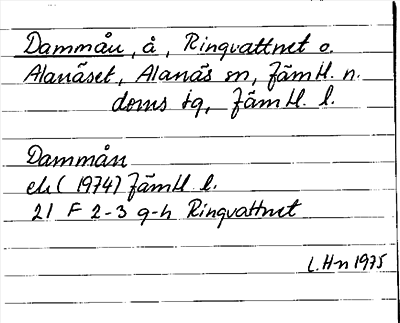 Dammån, å, Ringvattnet o.
Alanäset, Alanäs sn, Jämtl. n.
doms jq, Jämtl. l.
Dammån
ek (1974) Jämtl l.
21 F 2-3 g-h Ringvattnet
L. H-n 1975